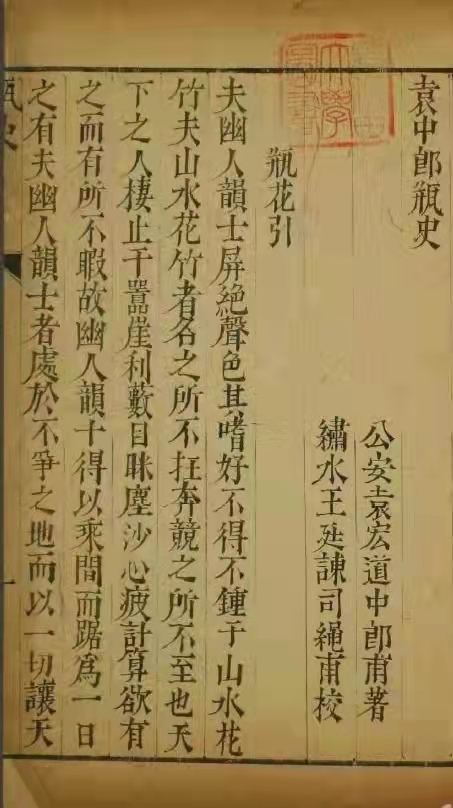 袁中郎瓶史
公安袁宏道中郎甫著
繡水王廷諫司繩甫校
瓶花引
夫幽人韻士屏絶聲色其嗜好不得不鍾于山水花
竹夫山水花竹者名之所不在奔競之所不至也天
下之人棲止于囂崖利藪目眯塵沙心疲計算欲有
之而有所不暇故幽人韻士得以乘間而踞爲一日
之有夫幽人韻士者處於不爭之地而以一切讓天
瓶史
一